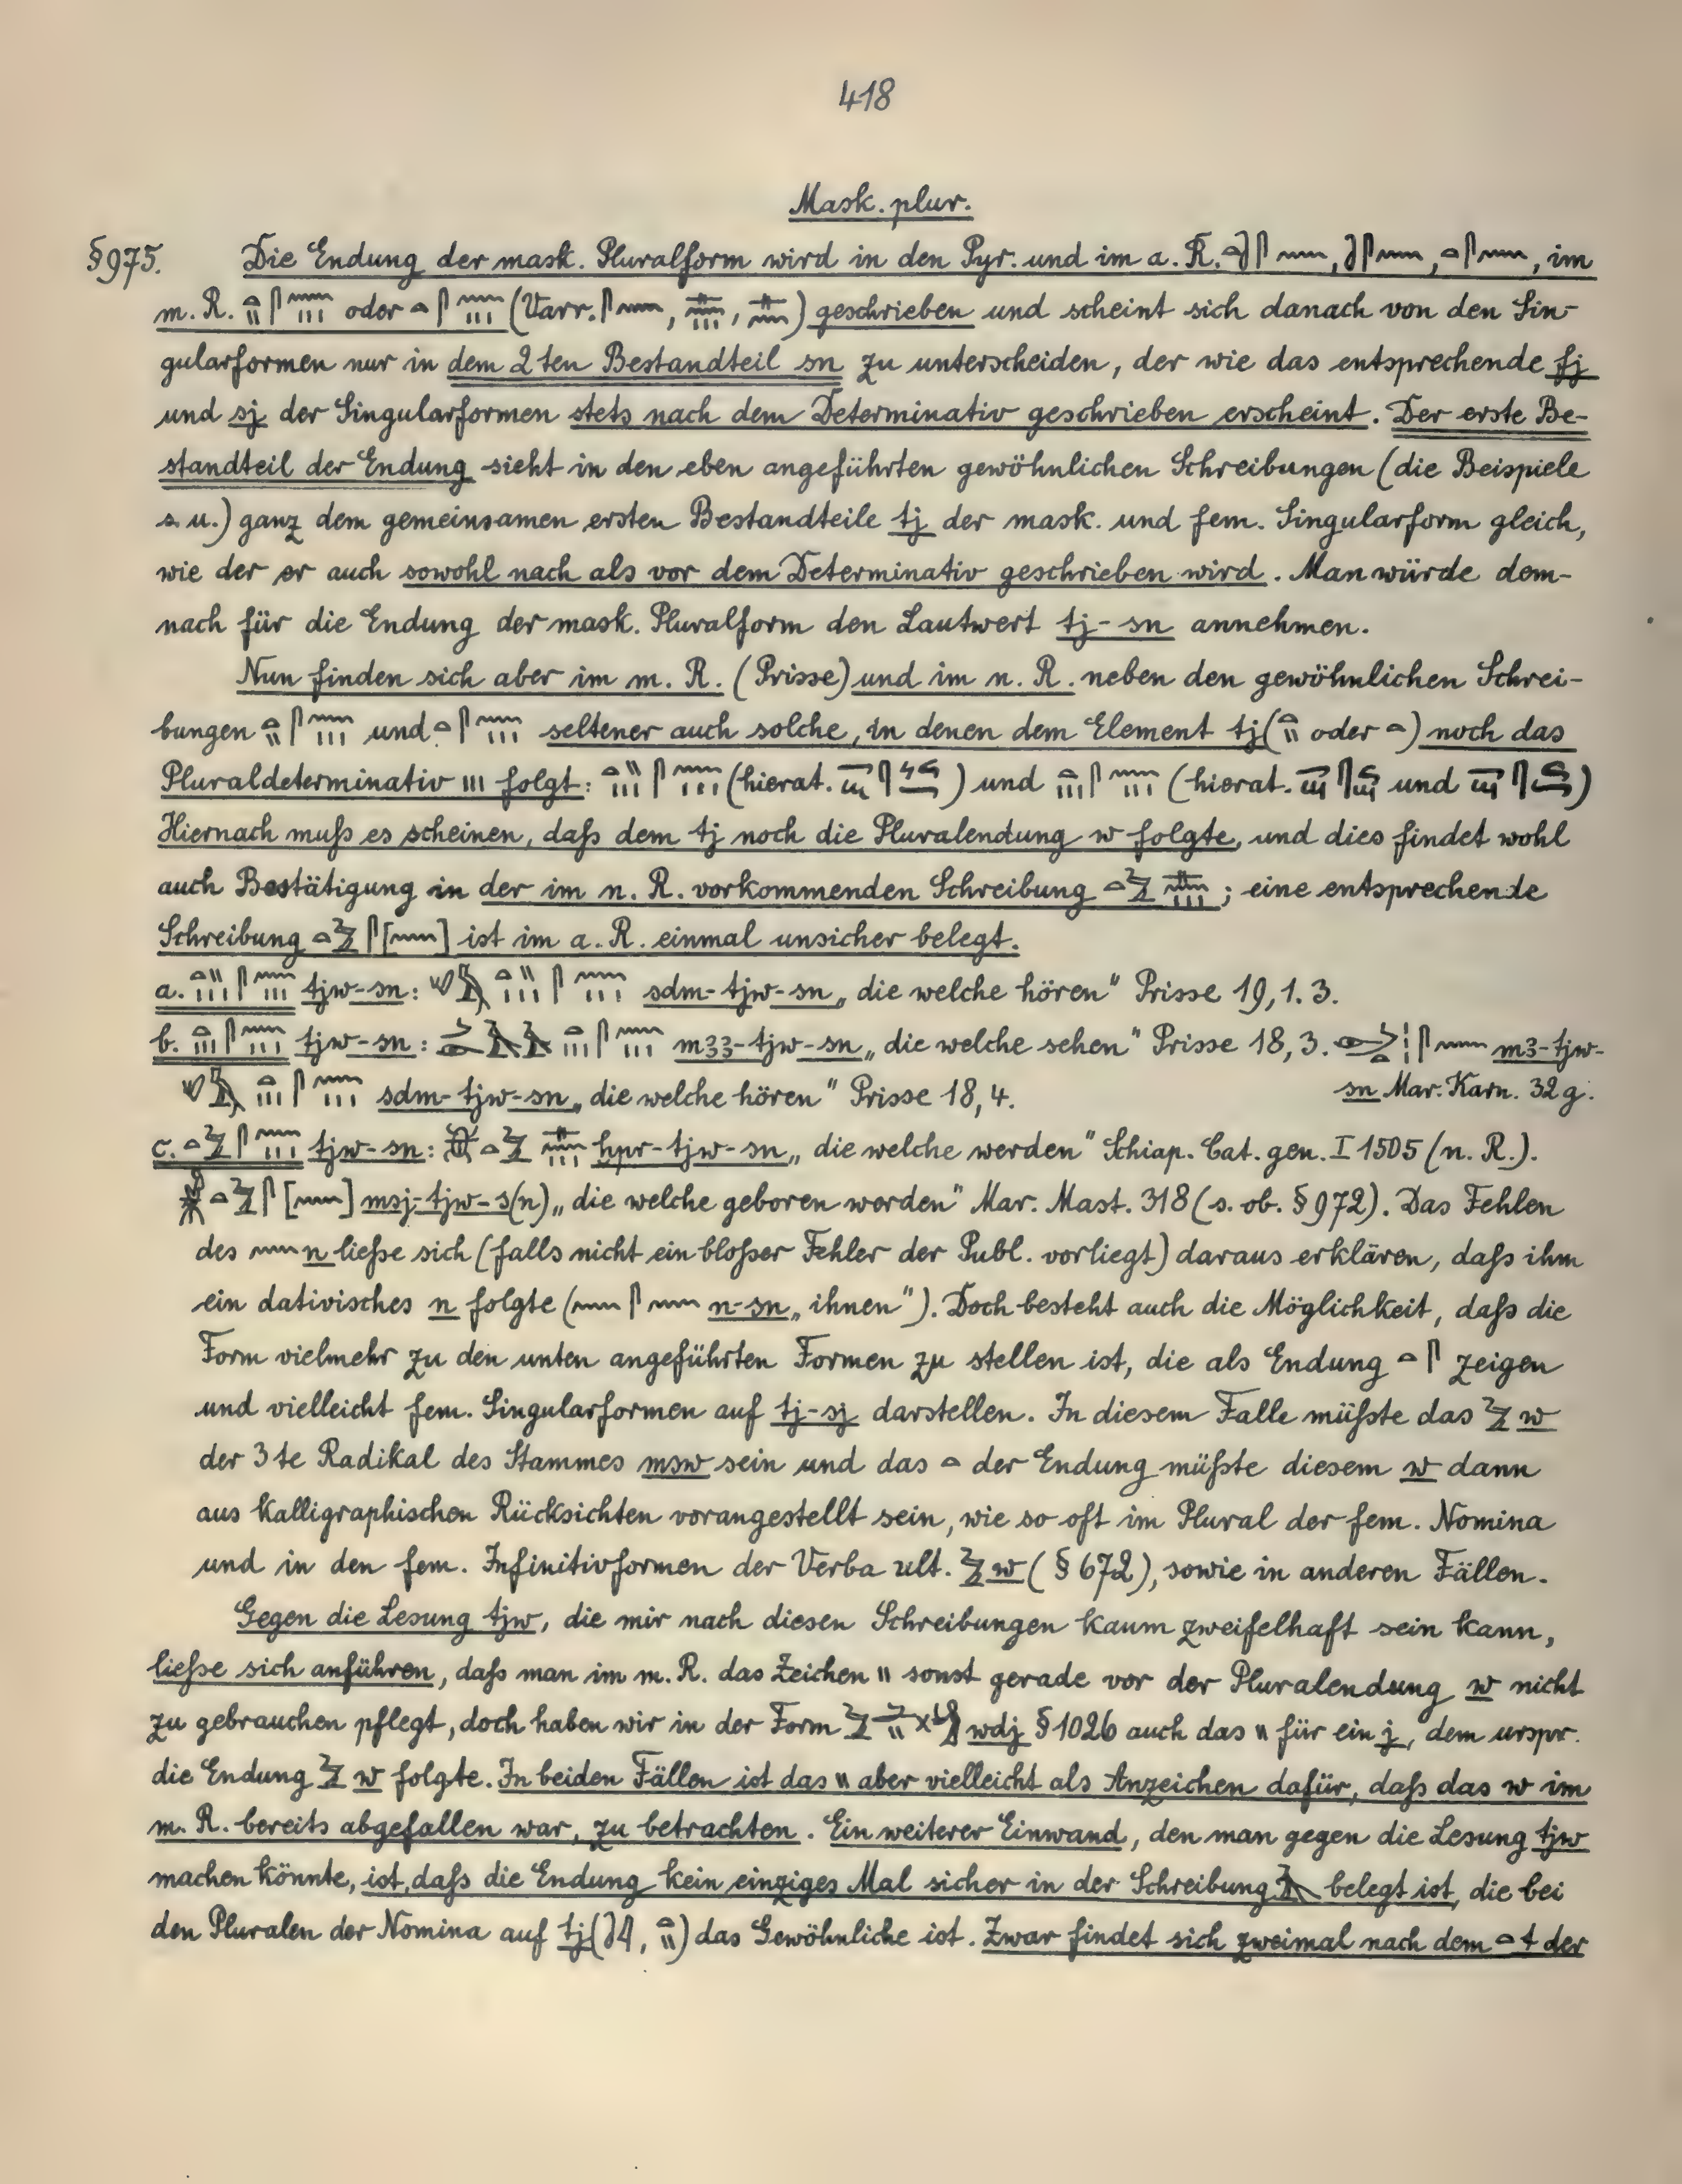 418
Mask. plur.
§975. Die Endung der mask. Pluralform wird in den Pyr. und im a. R. 𓏏𓍿𓋴𓈖, 𓍿𓋴𓈖, 𓏏𓋴𓈖, im
m. R. 𓏏𓏭𓋴𓈖𓏥 oder 𓏏𓋴𓈖𓏥 (Varr. 𓋴𓈖, 𓊃𓈖𓏥, 𓊃𓈖) geschrieben und scheint sich danach von den Sin-
gularformen nur in dem 2ten Bestandteil sn zu unterscheiden, der wie das entsprechende fj
und sj der Singularformen stets nach dem Determinativ geschrieben erscheint. Der erste Be-
standteil der Endung sieht in den eben angeführten gewöhnlichen Schreibungen (die Beispiele
s. u.) ganz dem gemeinsamen ersten Bestandteile tj der mask. und fem. Singularform gleich,
wie der er auch sowohl nach als vor dem Determinativ geschrieben wird. Man würde dem-
nach für die Endung der mask. Pluralform den Lautwert tj-sn annehmen.
Nun finden sich aber im m. R. (Prisse) und im n. R. neben den gewöhnlichen Schrei-
bungen 𓏏𓏭𓋴𓈖𓏥 und 𓏏𓋴𓈖𓏥 seltener auch solche, in denen dem Element tj (𓏏𓏭 oder 𓏏) noch das
Pluraldeterminativ 𓏥 folgt: 𓏏𓏭𓏥𓋴𓈖𓏥 (hierat. ) und 𓏏𓏥𓋴𓈖𓏥 (hierat. und )
Hiernach muß es scheinen, daß dem tj noch die Pluralendung w folgte, und dies findet wohl
auch Bestätigung in der im n. R. vorkommenden Schreibung 𓏏𓅱𓊃𓈖𓏥; eine entsprechende
Schreibung 𓏏𓅱𓋴[𓈖] ist im a. R. einmal unsicher belegt.
a. 𓏏𓏭𓏥𓋴𓈖𓏥 tjw-sn: 𓏏𓏭𓏥𓋴𓈖𓏥 sdm-tjw-sn „die welche hören" Prisse 19,1.3.
b. 𓏏𓏥𓋴𓈖𓏥 tjw-sn: 𓏏𓏥𓋴𓈖𓏥 m33-tjw-sn „die welche sehen" Prisse 18,3. 𓋴𓈖 m3-tjw-
𓏏𓏥𓋴𓈖𓏥 sdm-tjw-sn „die welche hören" Prisse 18,4. sn Mar. Karn. 32g.
c. 𓏏𓅱𓋴𓈖𓏥 tjw-sn: 𓆣𓏏𓅱𓊃𓈖𓏥 hpr-tjw-sn „die welche werden" Schiap. Cat. gen. I 1505 (n. R.).
𓄟𓏏𓅱𓋴[𓈖] msj-tjw-s(n) „die welche geboren werden" Mar. Mast. 318 (s. ob. §972). Das Fehlen
des 𓈖 n ließe sich (falls nicht ein bloßer Fehler der Publ. vorliegt) daraus erklären, daß ihm
ein dativisches n folgte (𓈖𓋴𓈖 n-sn „ihnen"). Doch besteht auch die Möglichkeit, daß die
Form vielmehr zu den unten angeführten Formen zu stellen ist, die als Endung 𓏏𓋴 zeigen
und vielleicht fem. Singularformen auf tj-sj darstellen. In diesem Falle müßte das 𓅱 w
der 3te Radikal des Stammes msw sein und das 𓏏 der Endung müßte diesem w dann
aus kalligraphischen Rücksichten vorangestellt sein, wie so oft im Plural der fem. Nomina
und in den fem. Infinitivformen der Verba ult. 𓅱 w (§672), sowie in anderen Fällen.
Gegen die Lesung tjw, die mir nach diesen Schreibungen kaum zweifelhaft sein kann,
ließe sich anführen, daß man im m. R. das Zeichen 𓏭 sonst gerade vor der Pluralendung w nicht
zu gebrauchen pflegt, doch haben wir in der Form wdj §1026 auch das 𓏭 für ein j, dem urspr.
die Endung 𓅱 w folgte. In beiden Fällen ist das 𓏭 aber vielleicht als Anzeichen dafür, daß das w im
m. R. bereits abgefallen war, zu betrachten. Ein weiterer Einwand, den man gegen die Lesung tjw
machen könnte, ist, daß die Endung kein einziges Mal sicher in der Schreibung belegt ist, die bei
den Pluralen der Nomina auf tj (𓍿𓇋, 𓏏𓏭) das Gewöhnliche ist. Zwar findet sich zweimal nach dem 𓏏 t der